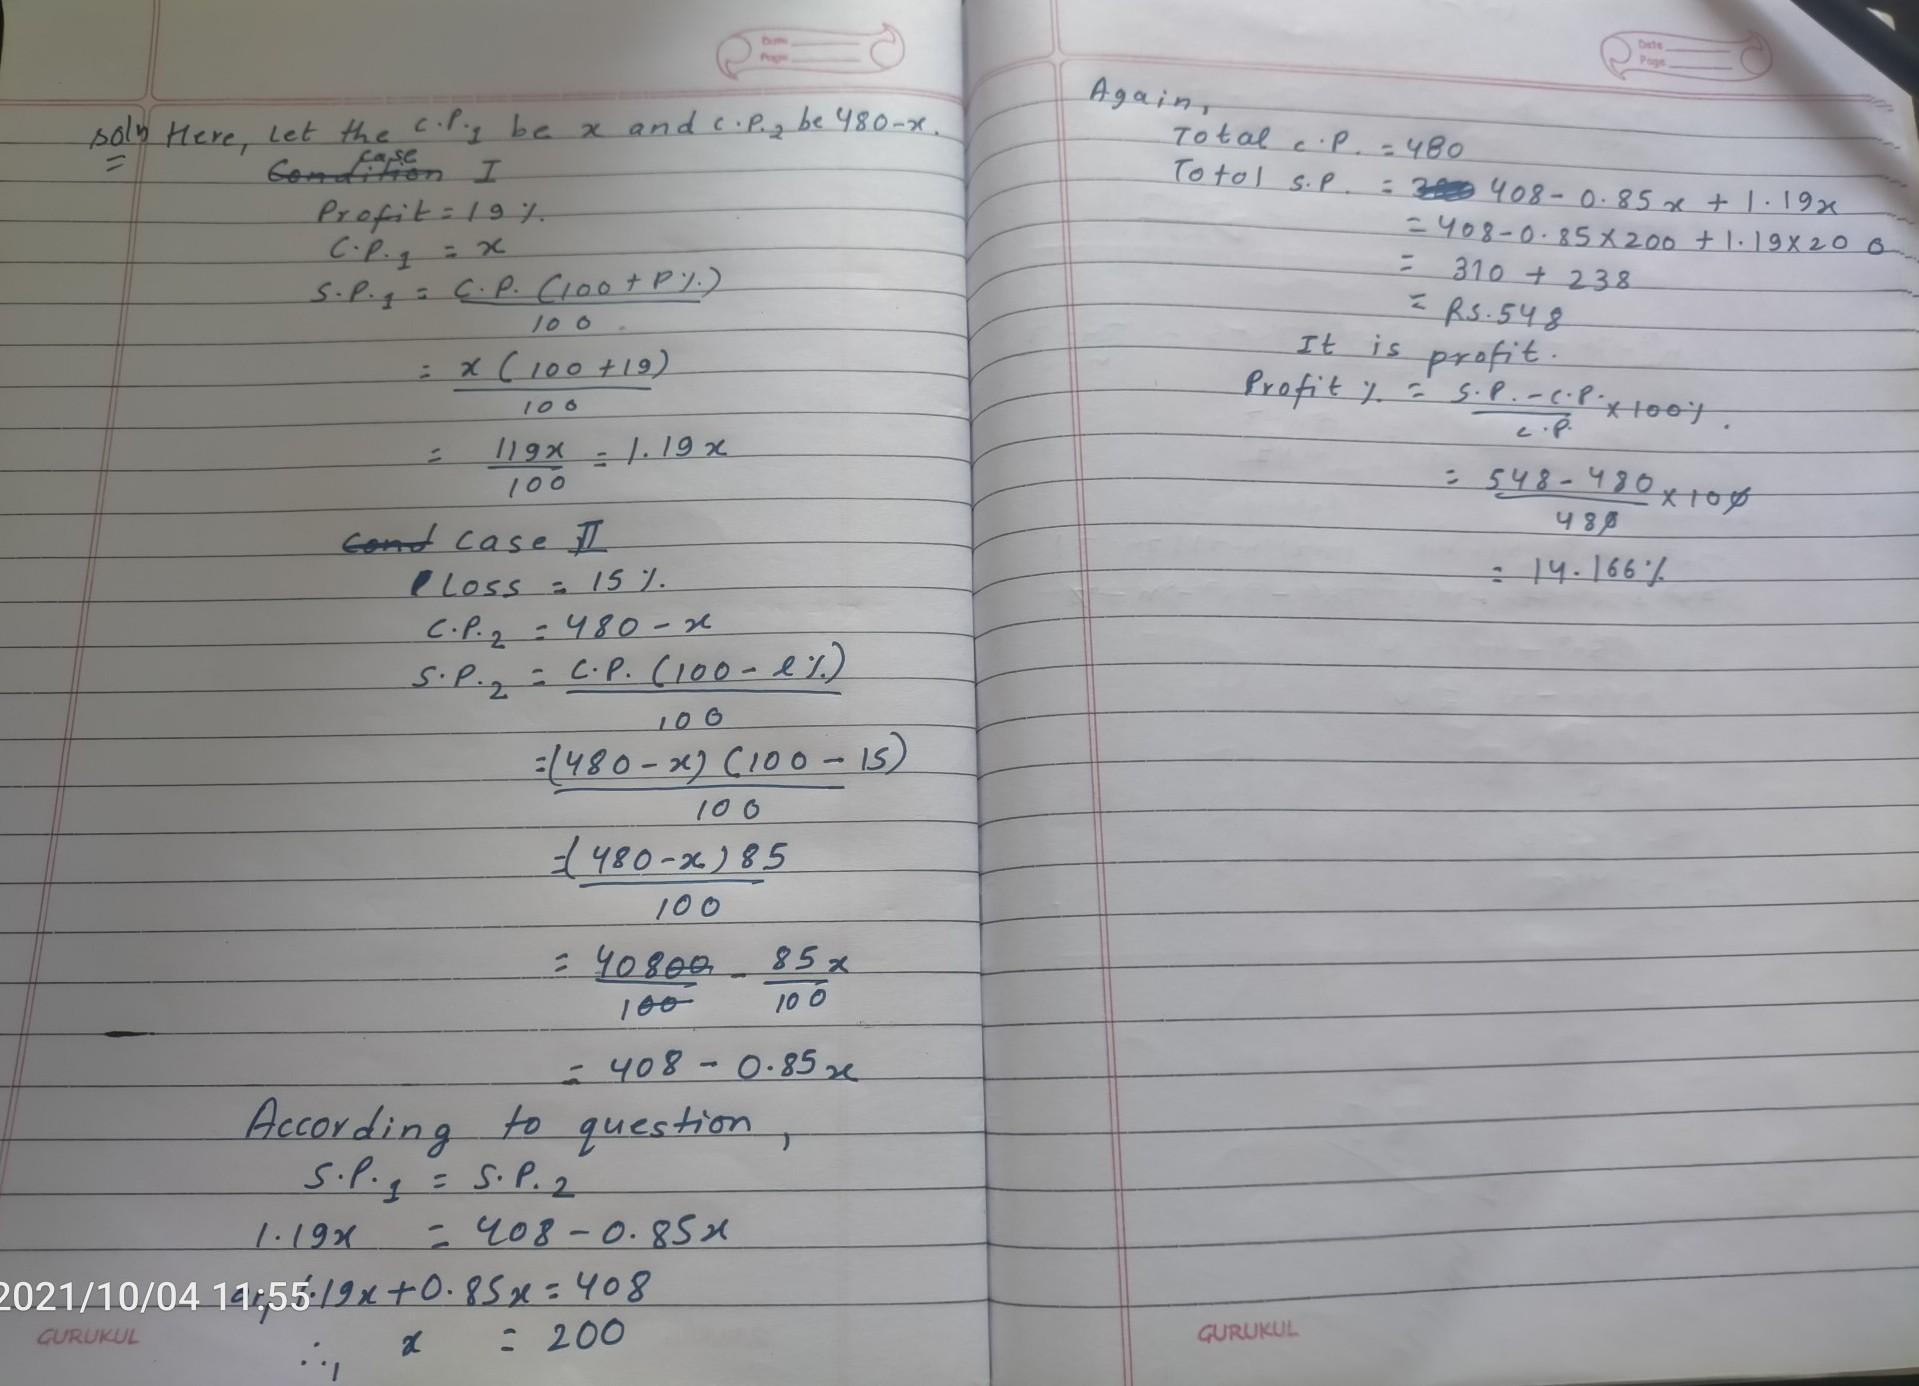 Date
Page
soln Here, Let the C.P.1 be x and C.P.2 be 480-x.
Condition case I
Profit = 19%.
C.P.1 = x
S.P.1 = C.P. (100 + P%)
100
= x (100 + 19)
100
= 119x = 1.19x
100
Cond Case II
Loss = 15%.
C.P.2 = 480 - x
S.P.2 = C.P. (100 - l%)
100
= (480 - x) (100 - 15)
100
= (480 - x) 85
100
= 40800 - 85x
100 100
= 408 - 0.85x
According to question,
S.P.1 = S.P.2
1.19x = 408 - 0.85x
or, 1.19x + 0.85x = 408
∴, x = 200
2021/10/04 11:55
GURUKUL
Date
Page
Again,
Total C.P. = 480
Total S.P. = 408 - 0.85x + 1.19x
= 408 - 0.85 × 200 + 1.19 × 200
= 310 + 238
= RS. 548
It is profit.
Profit % = S.P. - C.P. × 100%.
C.P.
= 548 - 480 × 100
480
= 14.166%
GURUKUL